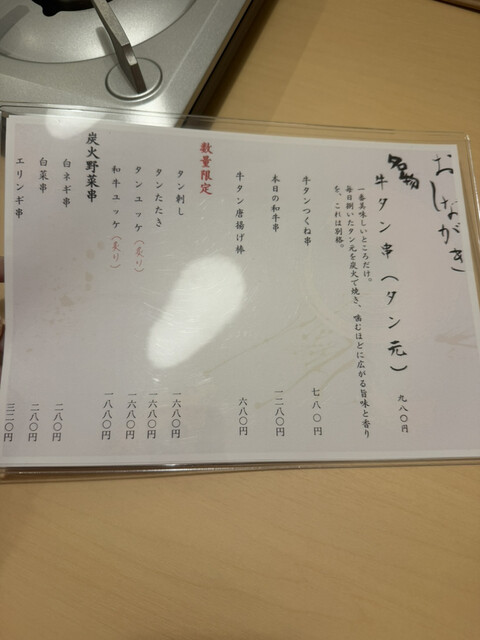 おしながき
名物
牛タン串（タン元） 九八〇円
一番美味しいところだけ。
毎日捌いたタン元を炭火で焼き、噛むほどに広がる旨味と香り
を、これは別格。
牛タンつくね串 七八〇円
本日の和牛串 一二八〇円
牛タン唐揚げ棒 六八〇円
数量限定
タン刺し 一六八〇円
タンたたき 一六八〇円
タンユッケ（炙り） 一六八〇円
和牛ユッケ（炙り） 一八八〇円
炭火野菜串
白ネギ串 二八〇円
白菜串 二八〇円
エリンギ串 三二〇円